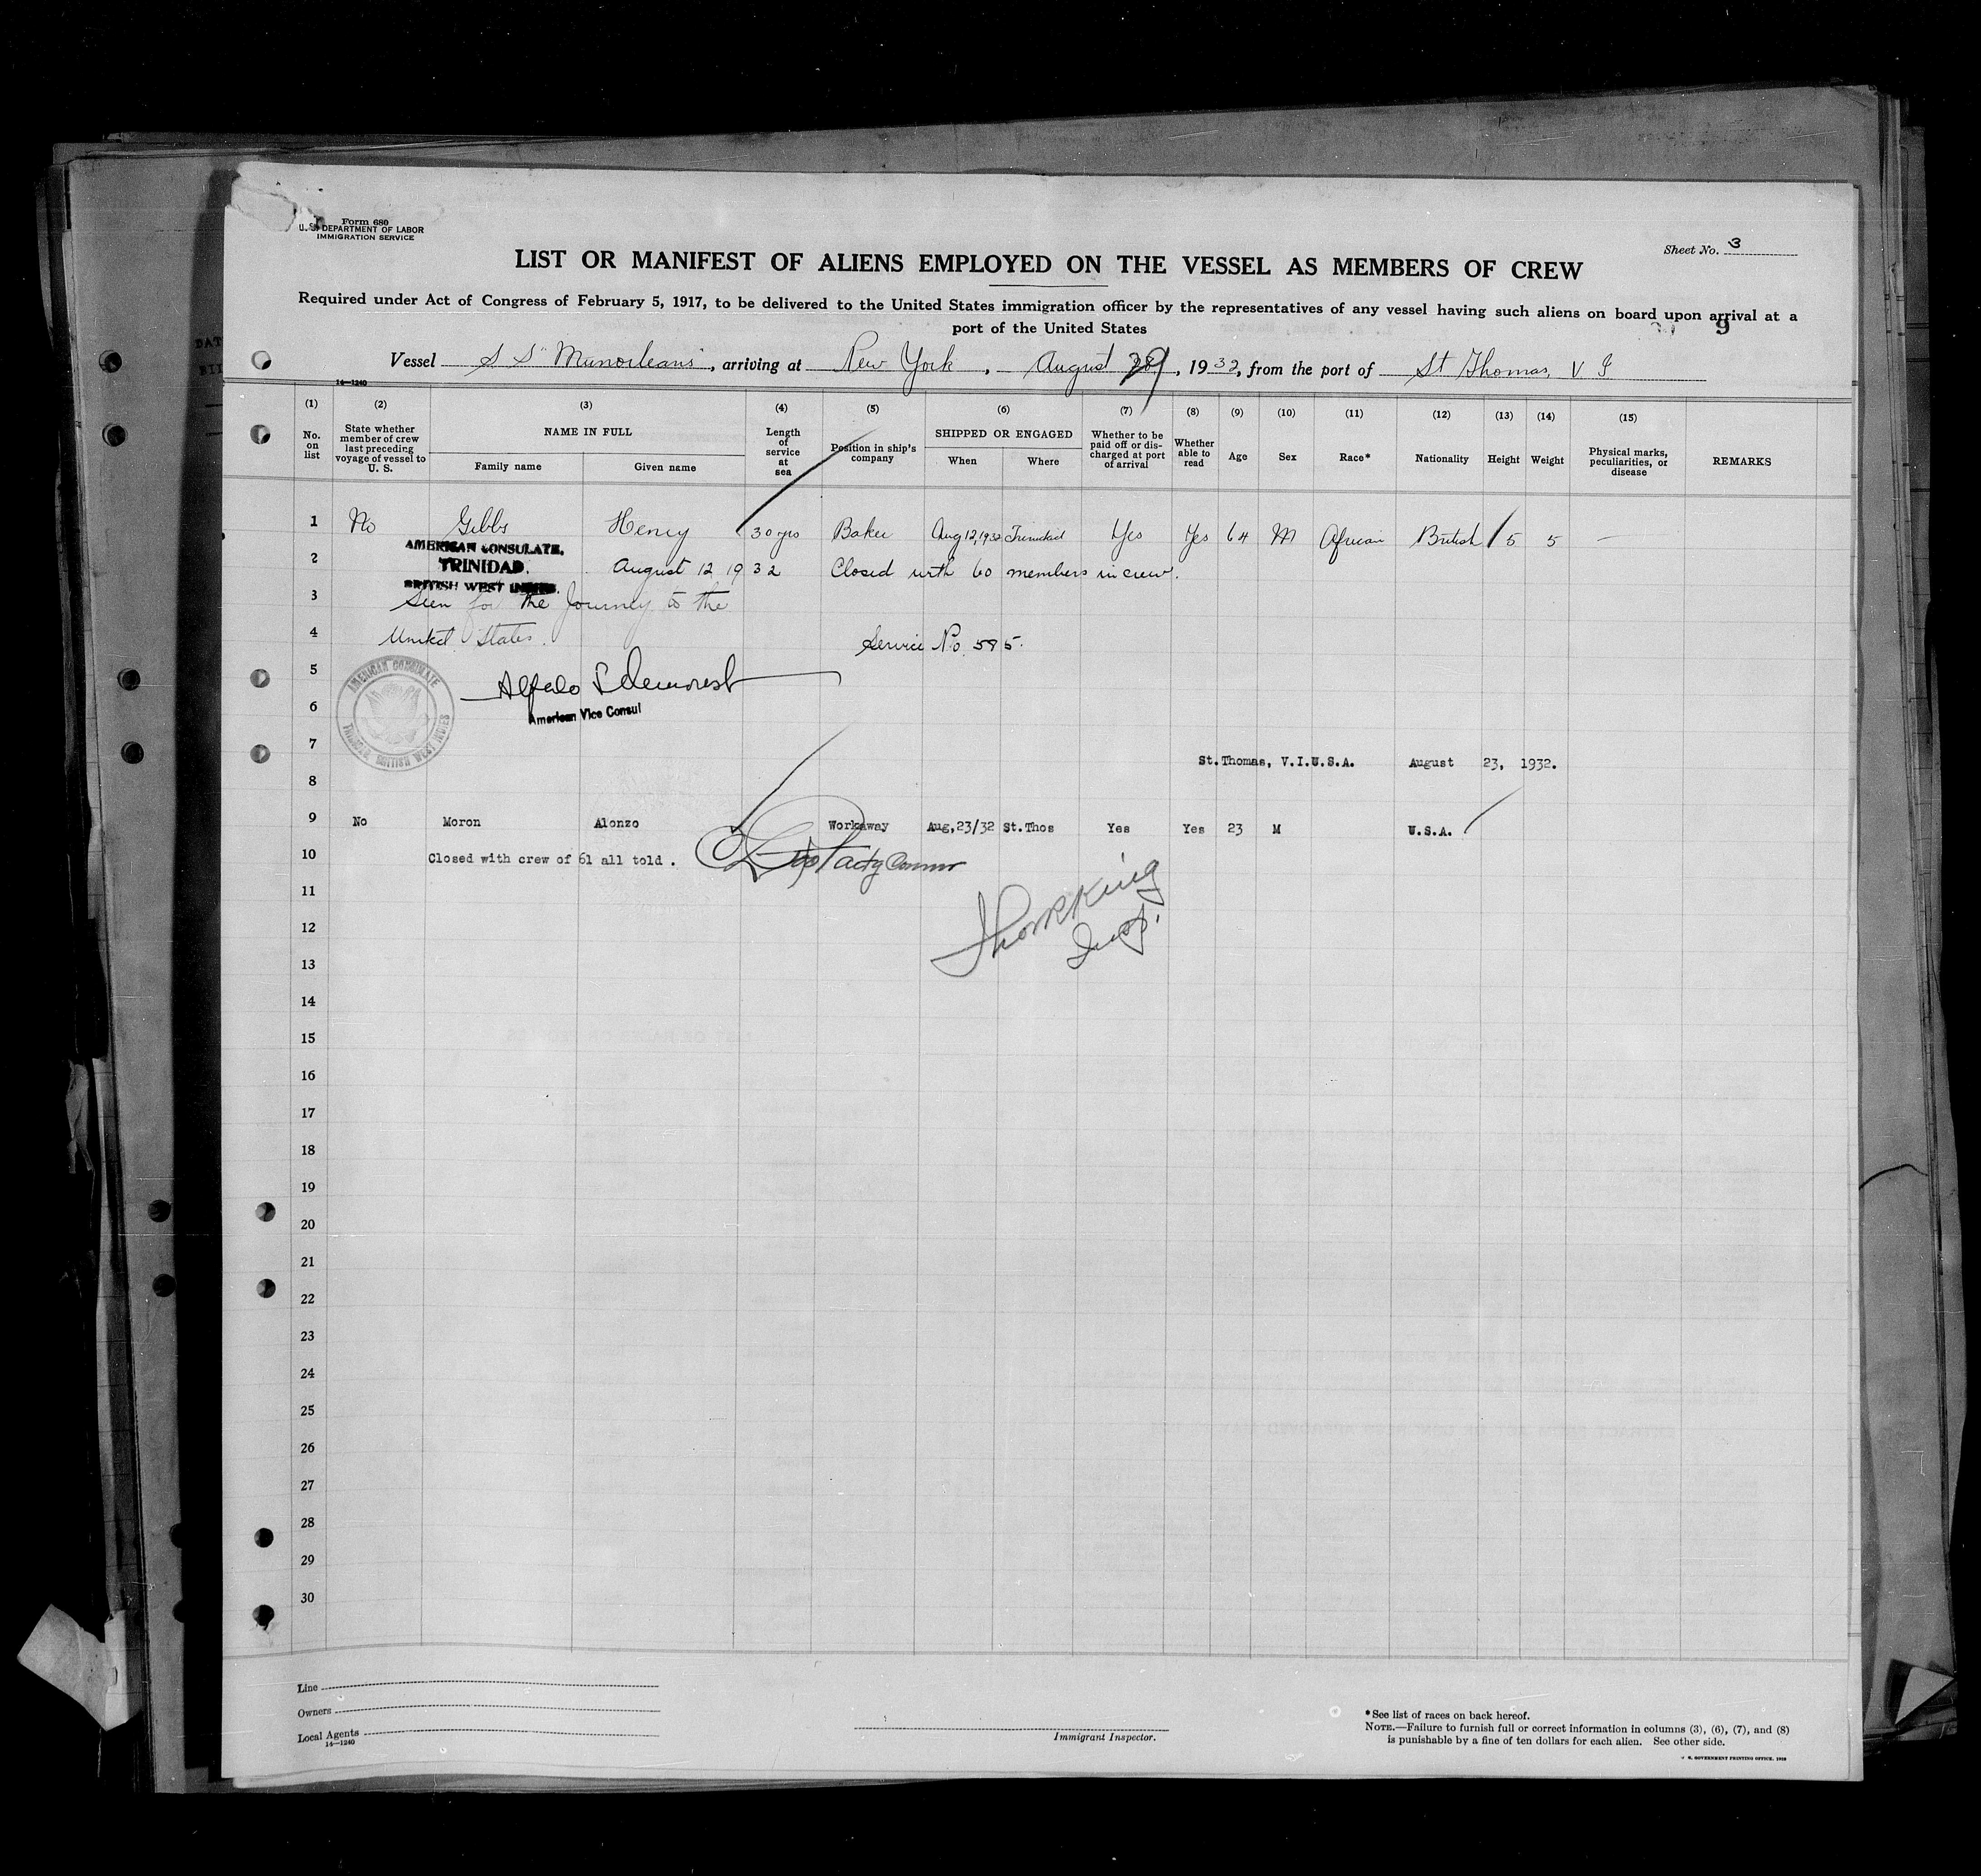 Form 680
U. S. DEPARTMENT OF LABOR
IMMIGRATION SERVICE
Sheet No. 3
LIST OR MANIFEST OF ALIENS EMPLOYED ON THE VESSEL AS MEMBERS OF CREW
Required under Act of Congress of February 5, 1917, to be delivered to the United States immigration officer by the representatives of any vessel having such aliens on board upon arrival at a
port of the United States
9
Vessel S S "Munorleans", arriving at New York, August 29, 1932, from the port of St Thomas, V I
14—1240
(1) (2) (3) (4) (5) (6) (7) (8) (9) (10) (11) (12) (13) (14) (15)
No. on list State whether member of crew last preceding voyage of vessel to U. S. NAME IN FULL Family name Given name Length of service at sea Position in ship's company SHIPPED OR ENGAGED When Where Whether to be paid off or discharged at port of arrival Whether able to read Age Sex Race* Nationality Height Weight Physical marks, peculiarities, or disease REMARKS
1 No Gibbs Henry 30 yrs Baker Aug 12, 1932 Trinidad Yes Yes 64 M African British 5 5 —
AMERICAN CONSULATE,
2 TRINIDAD. August 12 1932 Closed with 60 members in crew.
BRITISH WEST INDIES.
3 Seen for the Journey to the
4 United States. Service No. 595.
5
AMERICAN CONSULATE TRINIDAD, BRITISH WEST INDIES
6 American Vice Consul
7
St. Thomas, V.I.U.S.A. August 23, 1932.
8
9 No Moron Alonzo Workaway Aug, 23/32 St. Thos Yes Yes 23 M U.S.A.
10 Closed with crew of 61 all told .
11
12 Insp.
13
14
15
16
17
18
19
20
21
22
23
24
25
26
27
28
29
30
Line
Owners
Local Agents
14—1240
Immigrant Inspector.
*See list of races on back hereof.
NOTE.—Failure to furnish full or correct information in columns (3), (6), (7), and (8)
is punishable by a fine of ten dollars for each alien. See other side.
U. S. GOVERNMENT PRINTING OFFICE